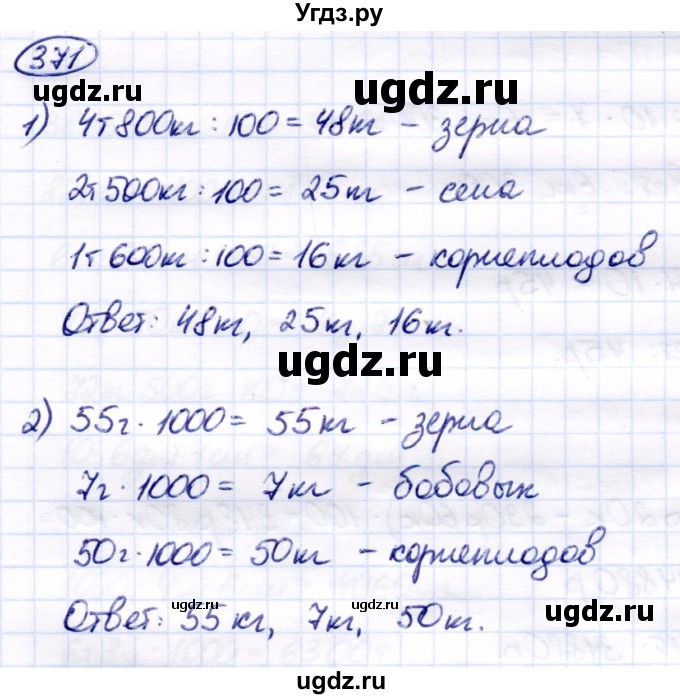 Угдз.ру
371
ugdz.ru
1) 4т 800кг : 100 = 48кг – зерна
ugdz.ru
2т 500кг : 100 = 25кг – сена
1т 600кг : 100 = 16кг – корнеплодов
Ответ: 48кг, 25кг, 16кг.
ugdz.ru
2) 55г · 1000 = 55кг – зерна
ugdz.ru
7г · 1000 = 7кг – бобовых
50г · 1000 = 50кг – корнеплодов
ugdz.ru ugdz.ru ugdz.ru
Ответ: 55 кг, 7кг, 50кг.
ugdz.ru